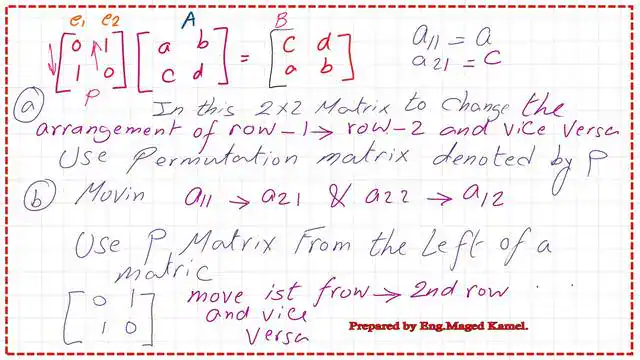 e1 e2 A B
[0 1 1 0] [a b c d] = [c d a b] a11 = a
P a21 = c
(a) In this 2x2 Matrix to Change the
arrangement of row-1 → row-2 and vice versa
Use Permutation matrix denoted by P
(b) Movin a11 → a21 & a22 → a12
Use P Matrix From the Left of a
matric
[0 1 1 0] move ist frow → 2nd row
and vice
versa
Prepared by Eng.Maged Kamel.